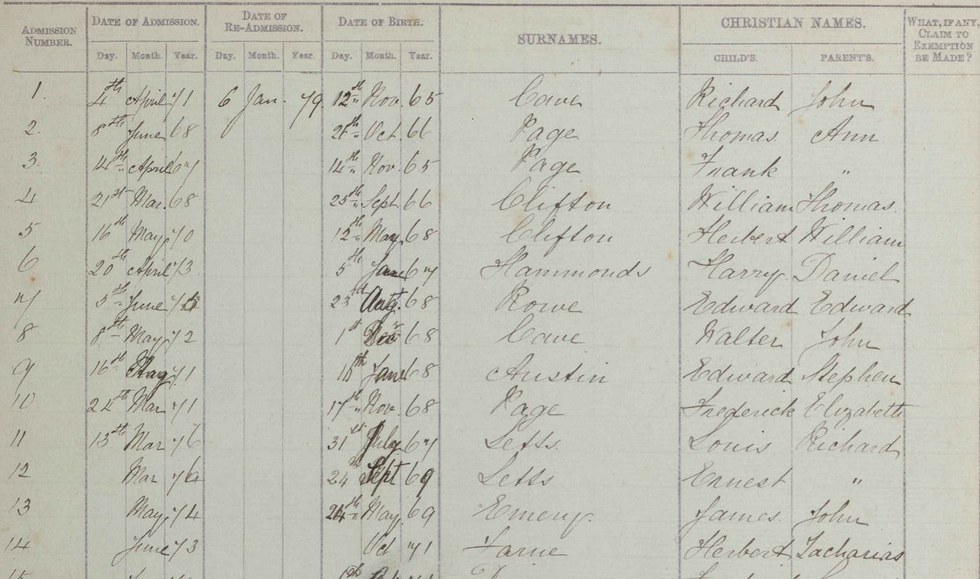 ADMISSION NUMBER. DATE OF ADMISSION. DATE OF RE-ADMISSION. DATE OF BIRTH. SURNAMES. CHRISTIAN NAMES. WHAT, IF ANY, CLAIM TO EXEMPTION BE MADE?
Day. Month. Year. Day. Month. Year. Day. Month. Year. CHILD'S. PARENT'S.
1. 4th April 71 6 Jan. 79 12th Nov. 65 Cave Richard John
2. 8th June 68 Oct. 66 Page Thomas Ann
3. 14th April 67 14th Nov. 65 Page Frank "
4 21st Mar. 68 25th Sept 66 Clifton William Thomas.
5 16th May 70 12th May 68 Clifton Herbert William
6 20th April 73 5th June 67 Hammonds Harry Daniel
7 5th June 23rd Aug. 68 Rowe Edward Edward
8 8th May 72 1st Decr 68 Cave Walter John
9 16th May 71 18th June 68 Austin Edward Stephen
10 Mar 71 17th Nov. 68 Page Frederick Elizabeth
11 13th Mar 76 31st July 67 Letts Louis Richard
12 Mar 24th Sept 69 Letts Ernest "
13 May 74 May 69 Emery James John
14 June 73 Oct 71 Farne Herbert Zacharias
15